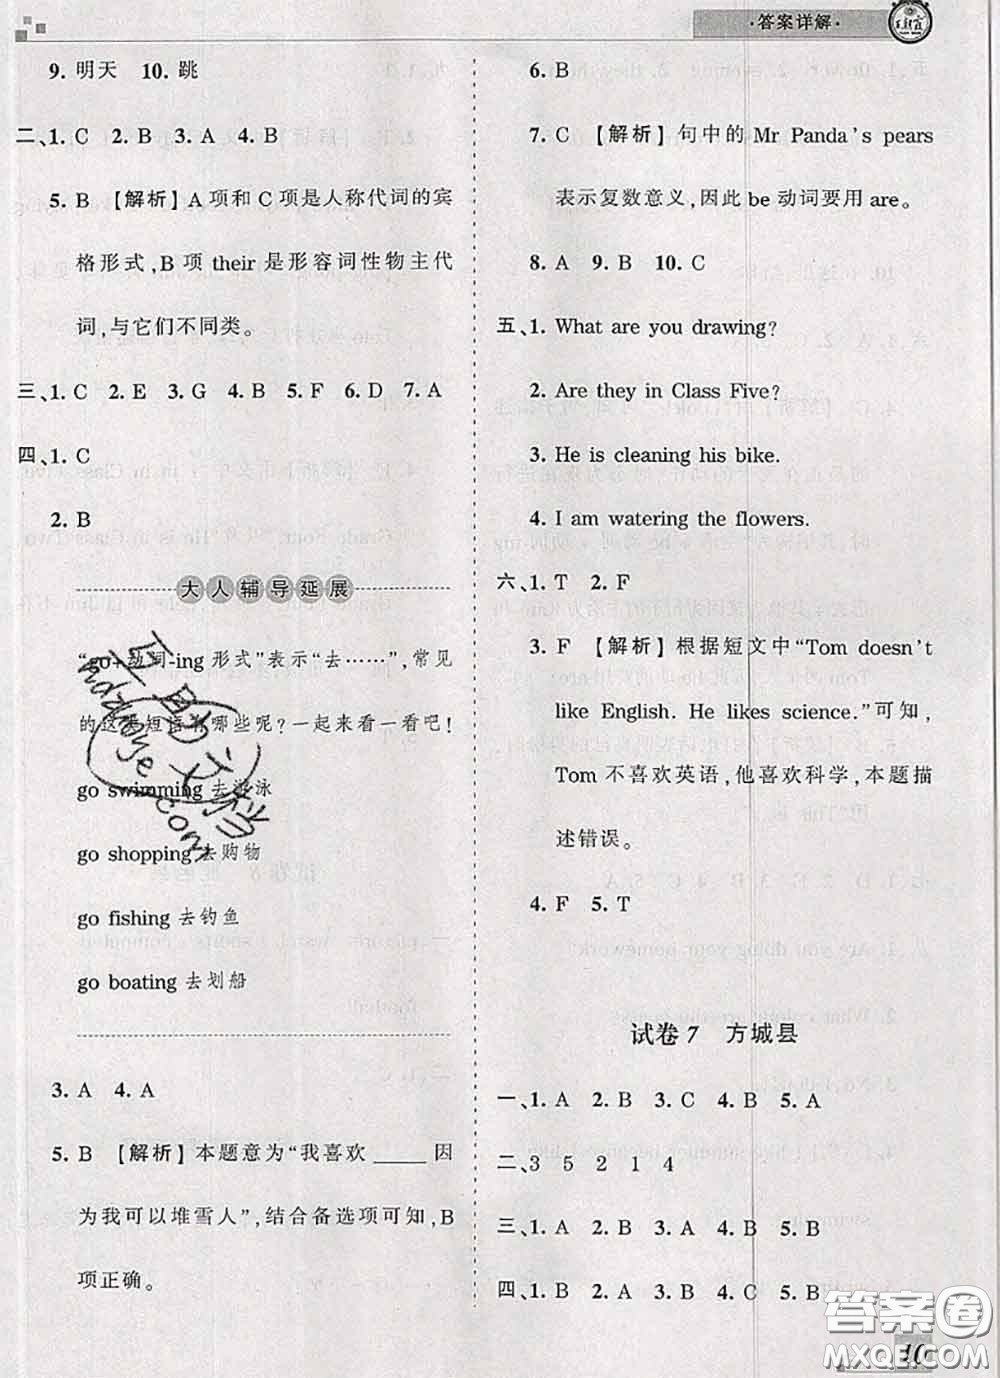 ·答案详解·
9. 明天 10. 跳
二、1. C 2. B 3. A 4. B
5. B 【解析】A 项和 C 项是人称代词的宾
格形式,B 项 their 是形容词性物主代
词,与它们不同类。
三、1. C 2. E 3. G 4. B 5. F 6. D 7. A
四、1. C
2. B
大人辅导延展
“go+动词-ing 形式”表示“去……”,常见
的这类短语有哪些呢?一起来看一看吧!
go swimming 去游泳
go shopping 去购物
go fishing 去钓鱼
go boating 去划船
3. A 4. A
5. B 【解析】本题意为“我喜欢 _____ 因
为我可以堆雪人”,结合备选项可知,B
项正确。
6. B
7. C 【解析】句中的 Mr Panda's pears
表示复数意义,因此 be 动词要用 are。
8. A 9. B 10. C
五、1. What are you drawing?
2. Are they in Class Five?
3. He is cleaning his bike.
4. I am watering the flowers.
六、1. T 2. F
3. F 【解析】根据短文中“Tom doesn't
like English. He likes science.”可知,
Tom 不喜欢英语,他喜欢科学,本题描
述错误。
4. F 5. T
试卷 7 方城县
一、1. A 2. B 3. C 4. B 5. A
二、3 5 2 1 4
三、1. B 2. B 3. A 4. B 5. B
四、1. B 2. A 3. B 4. C 5. B
10
答案圈
MXQE.COM